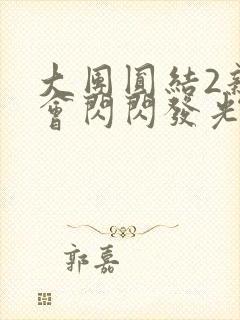 大團圓結2新
會閃閃發光
郭嘉